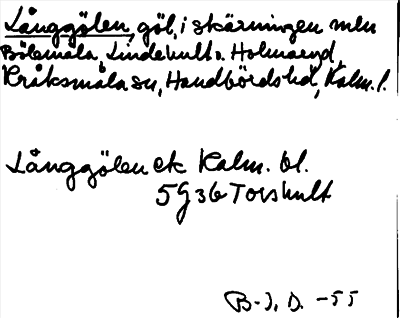 Långgölen, göl, i skärningen mln
Bölemåla, Lindehult o. Holmaryd,
Kråksmåla sn, Handbörds hd, Kalm. l.
Långgölen ek Kalm. bl.
5G 36 Torshult
B-J. D. -55